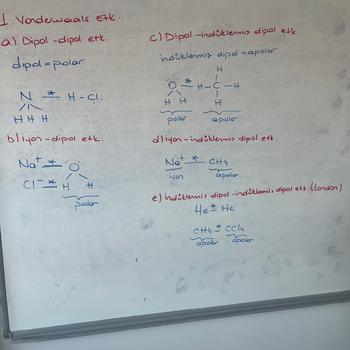 1. Vanderwaals etk.
a) Dipol-dipol etk.
dipol = polar
N * H-Cl:
H H H
b) iyon-dipol etk.
Na+ * O
Cl- * H H
polar
c) Dipol-indüklenmiş dipol etk.
indüklenmiş dipol = apolar
H
O * H-C-H
H H H
polar apolar
d) iyon-indüklenmiş dipol etk.
Na+ * CH4
iyon apolar
e) İndüklenmiş dipol-indüklenmiş dipol etk (london)
He * He
CH4 * CCl4
apolar apolar